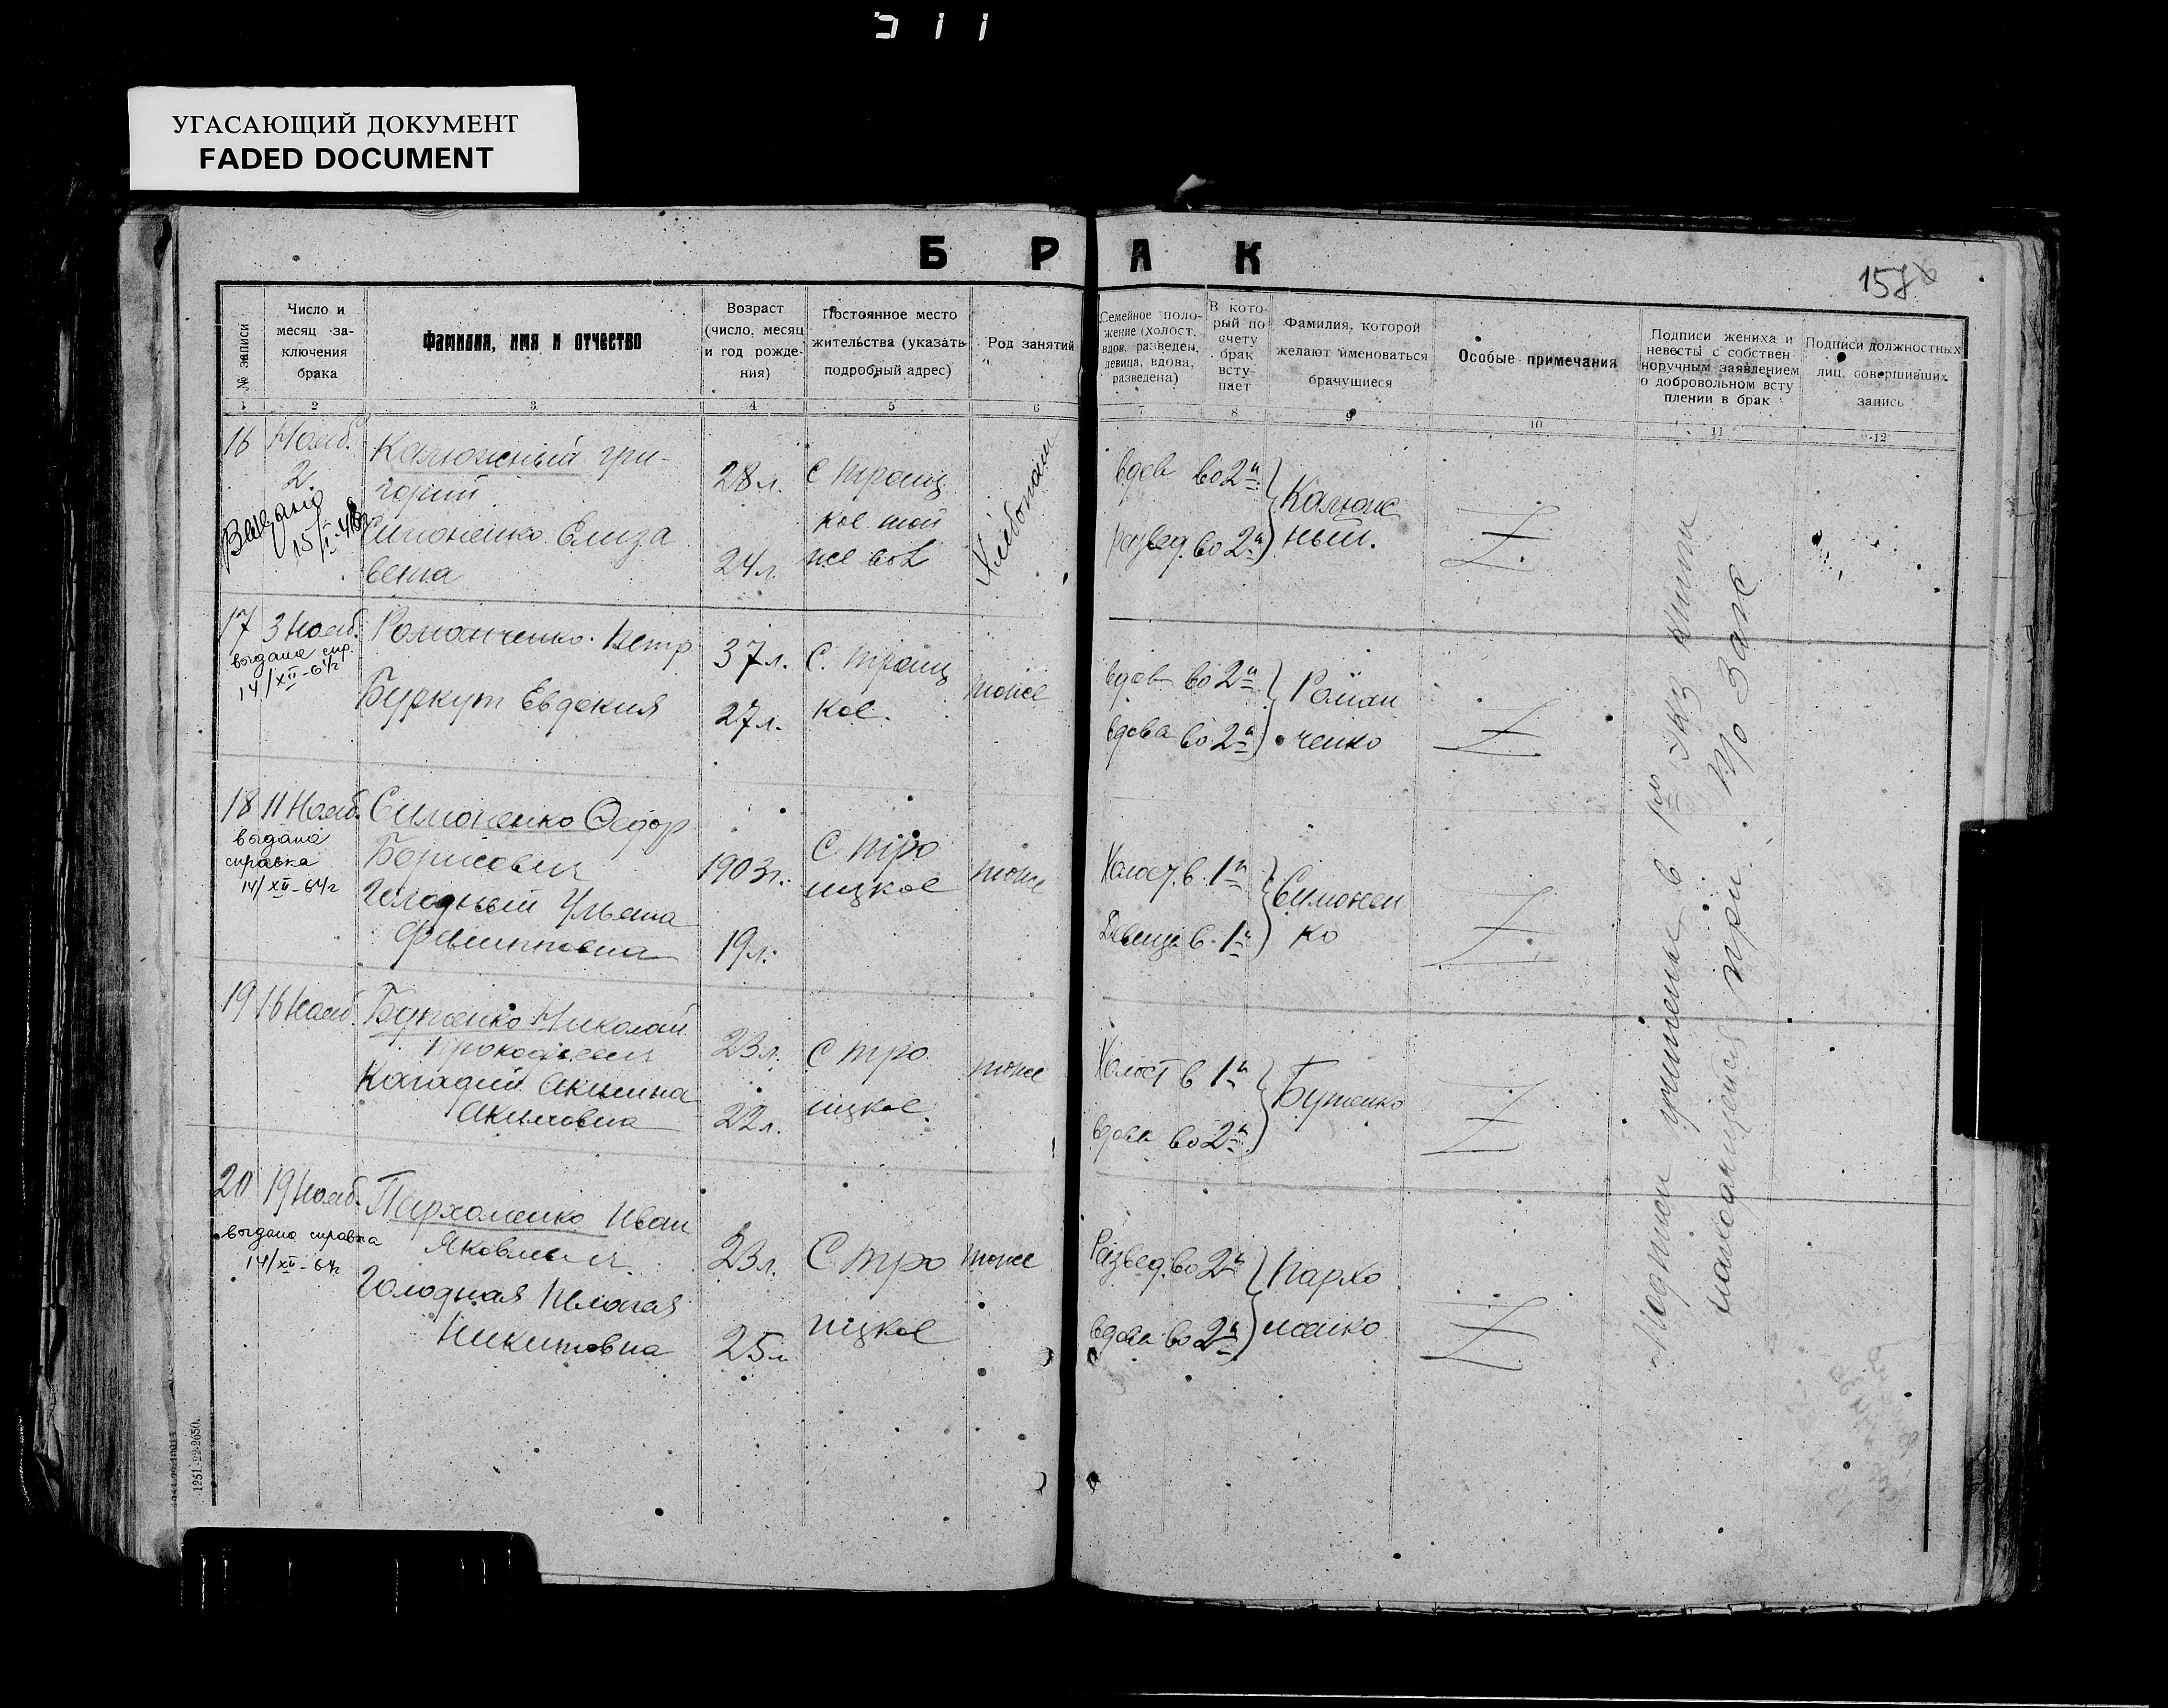 УГАСАЮЩИЙ ДОКУМЕНТ
FADED DOCUMENT
Б Р А К
157
№ записи
Число и месяц за-
ключения
брака
Фамилия, имя и отчество
Возраст
(число, месяц
и год рожде-
ния)
Постоянное место
жительства (указать
подробный адрес)
Род занятий
Семейное поло-
жение (холост,
вдов, разведен,
девица, вдова,
разведена)
В кото-
рый по
счету
брак
всту-
пает
Фамилия, которой
желают именоваться
брачущиеся
Особые примечания
Подписи жениха и
невесты с собствен
норучным заявлением
о добровольном всту
плении в брак
Подписи должностных
лиц, совершивших
запись
1 2 3 4 5 6 7 8 9 10 11 12
16 Нояб.
2.
Выдано
15/I-48г
Калюжный Гри-
горий
28 л.
Симоненко Елиза
вета
24 л.
с Троиц
кое той
же вол
Хлебопаш
вдов во 2й
развед. во 2й
Калюж
ный.
17 3 Нояб.
выдана спр.
14/XII-64г
Романченко Петр
37 л.
Буркут Евдокия
27 л.
с. Троиц
кое.
тоже
вдов во 2й
вдова во 2й
Роман
ченко
18 11 Нояб.
выдана
справка
14/XII-64г
Симоненко Федор
Борисович
1903 г.
Голодный Ульяна
Филипповна
19 л.
С Тро
ицкое
тоже
Холост. в 1й
Девица в 1й
Симонен
ко
19 16 Нояб.
Бутенко Николай
Прокофьевич
23 л.
Кагадий Акилина
Акимовна
22 л.
С Тро
ицкое.
тоже
Холост в 1й
вдова во 2й
Бутенко
20 19 Нояб.
выдана справка
14/XII-64г
Пархоменко Иван
Яковлевич
23 л.
Голодная Пелагея
Никитовна
25 л
С Тро
ицкое
тоже
Развед. во 2й
вдова во 2й
Пархо
менко
учинены в
книги
находящейся при
1251.-22-2650.